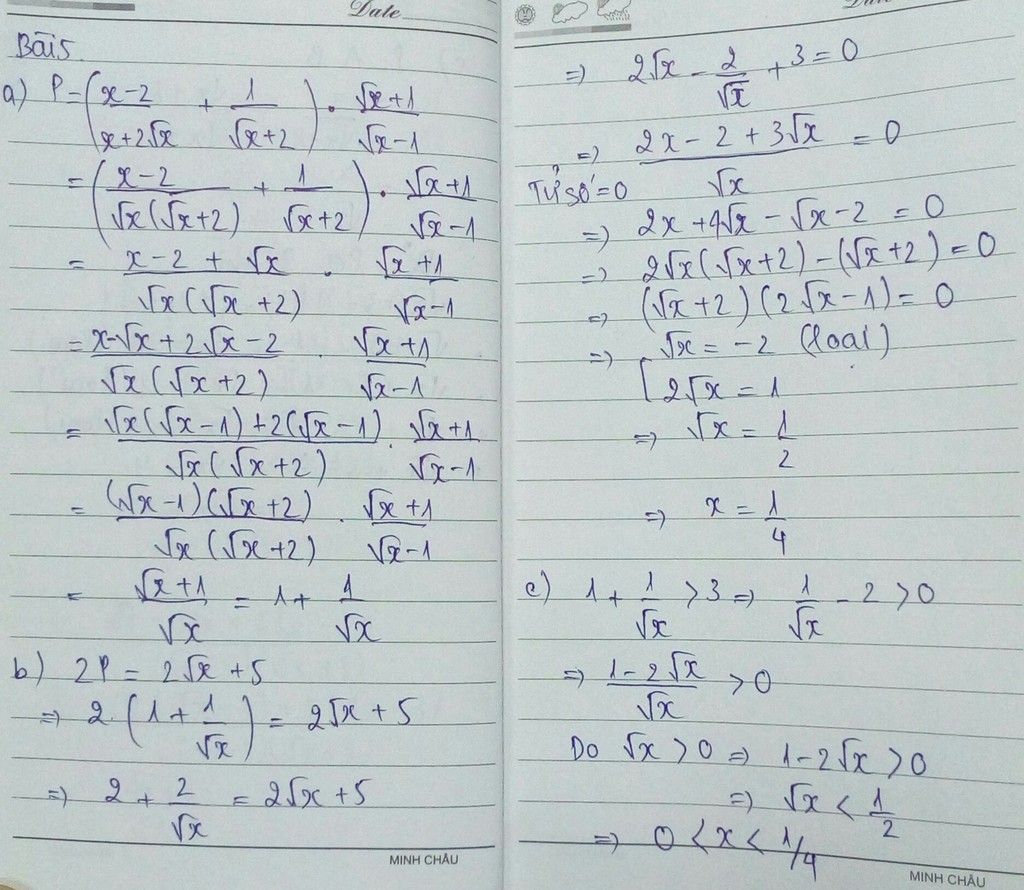 Date
Bài 5
a) P = ( (x-2)/(x+2√x) + 1/(√x+2) ) . (√x+1)/(√x-1)
= ( (x-2)/(√x(√x+2)) + 1/(√x+2) ) . (√x+1)/(√x-1)
= (x-2+√x)/(√x(√x+2)) . (√x+1)/(√x-1)
= (x-√x+2√x-2)/(√x(√x+2)) . (√x+1)/(√x-1)
= (√x(√x-1)+2(√x-1))/(√x(√x+2)) . (√x+1)/(√x-1)
= ((√x-1)(√x+2))/(√x(√x+2)) . (√x+1)/(√x-1)
= (√x+1)/√x = 1 + 1/√x
b) 2P = 2√x + 5
=> 2.(1 + 1/√x) = 2√x + 5
=> 2 + 2/√x = 2√x + 5
MINH CHÂU
=> 2√x - 2/√x + 3 = 0
=> (2x - 2 + 3√x)/√x = 0
Tử số = 0
=> 2x + 4√x - √x - 2 = 0
=> 2√x(√x+2) - (√x+2) = 0
=> (√x+2)(2√x-1) = 0
=> [ √x = -2 (loại)
2√x = 1
=> √x = 1/2
=> x = 1/4
c) 1 + 1/√x > 3 => 1/√x - 2 > 0
=> (1-2√x)/√x > 0
Do √x > 0 => 1-2√x > 0
=> √x < 1/2
=> 0 < x < 1/4
MINH CHÂU